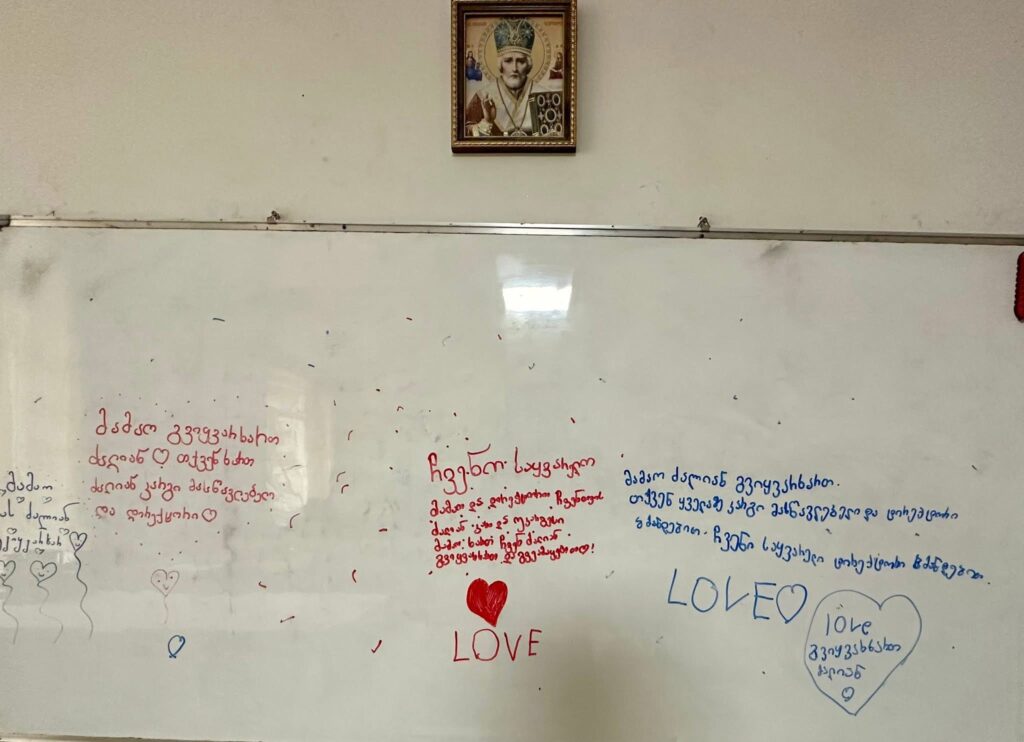 მამაო
ძალიან
მამაო გვიყვარხართ
ძალიან თქვენ ხართ
ძალიან კარგი მასწავლებელი
და დირექტორი
ჩვენო საყვარელო
მამაო და დირექტორო ჩვენთვის
ძალიან და უკარგესი
მამაო ხართ ჩვენ ძალიან
გვიყვარხართ და გვეამაყებით!
LOVE
მამაო ძალიან გვიყვარხართ.
თქვენ ყველაზე კარგი მასწავლებელი და დირექტორი
ბრძანდებით. ჩვენი საყვარელი დირექტორი ბრძანდებით.
LOVE
love
გვიყვარხართ
ძალიან